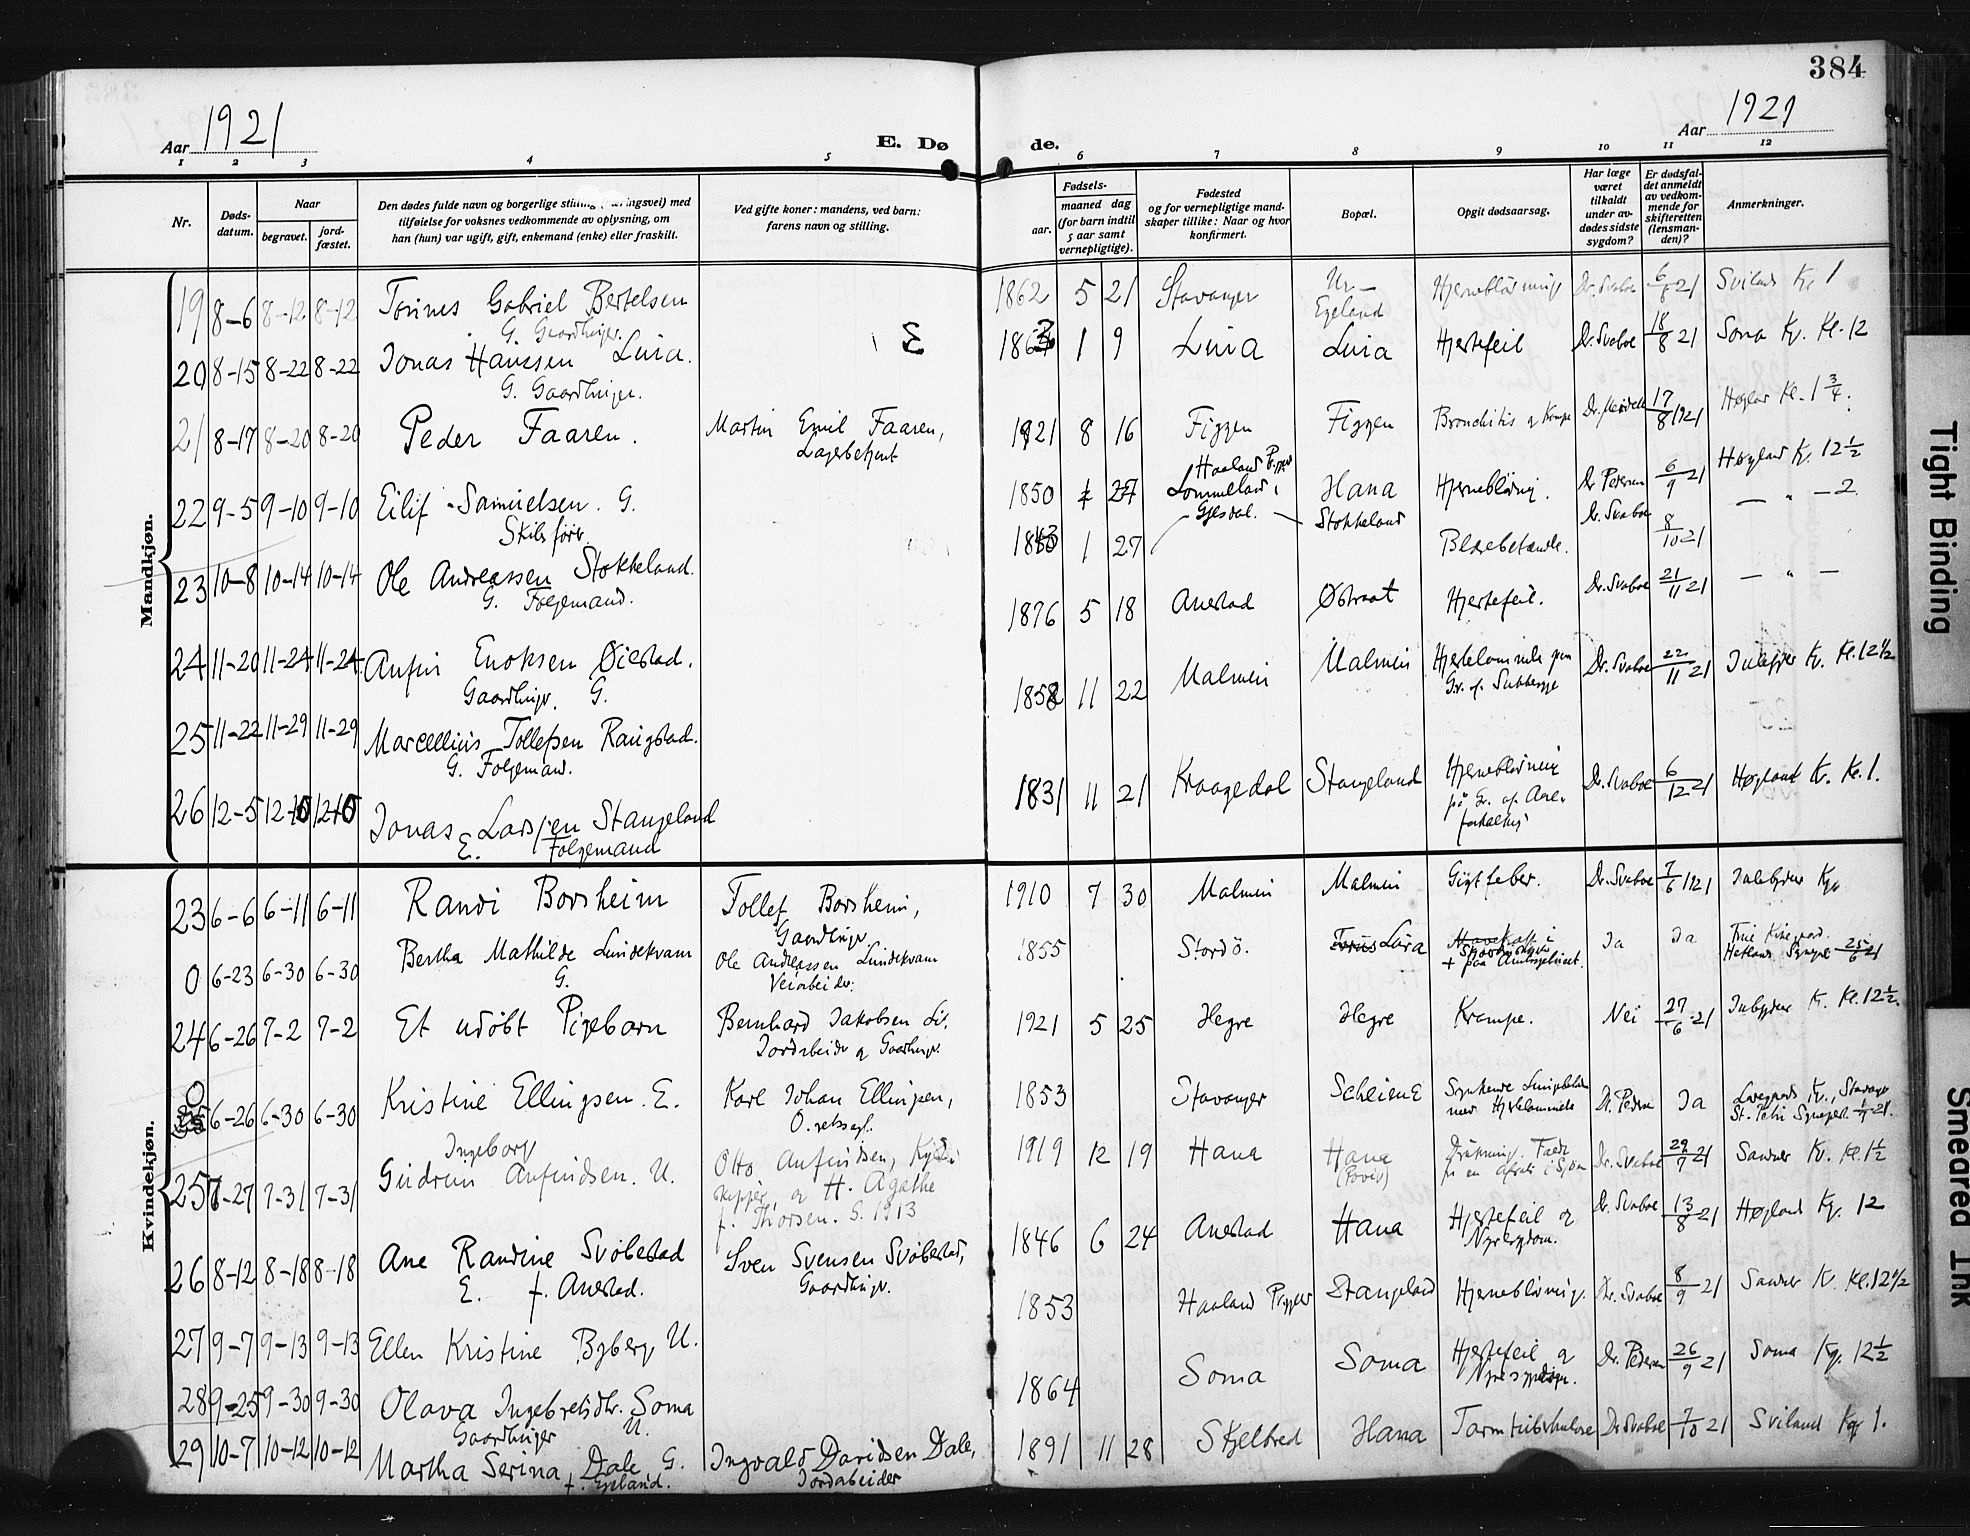 384
Aar 1921
E. Dø
de.
Aar 1921
1 2 3 4 5 6 7 8 9 10 11 12
Nr.
Døds-
datum.
Naar
begravet.
jord-
fæstet.
Den dødes fulde navn og borgerlige stilling ringsvei) med
tilføielse for voksnes vedkommende av oplysning, om
han (hun) var ugift, gift, enkemand (enke) eller fraskilt.
Ved gifte koner: mandens, ved barn:
farens navn og stilling.
Fødsels-
aar.
maaned dag
(for barn indtil
5 aar samt
vernepligtige).
Fødested
og for vernepligtige mand-
skaper tillike: Naar og hvor
konfirmert.
Bopæl.
Opgit dødsaarsag.
Har læge
været
tilkaldt
under av-
dødes sidste
sygdom?
Er dødsfal-
det anmeldt
av vedkom-
mende for
skifteretten
(lensman-
den)?
Anmerkninger.
Mandkjøn.
19 8-6 8-12 8-12 Tørines Gabriel Bertelsen
G. Gaardbruger.
1862 5 21 Stavanger Ur-
Egeland
Hjerneblødning Dr. Svaboe 6/8 21 Sviland K. 1
20 8-15 8-22 8-22 Jonas Hanssen Lura.
G. Gaardbruger.
E
1 9 Lura Lura Hjertefeil Dr. Svaboe 18/8 21 Soma K. Kl. 12
21 8-17 8-20 8-20 Peder Faaren.
Martin Emil Faaren,
Lagerbetjent
1921 8 16 Figgen Figgen Bronchitis og Krampe 17/8 1921 Høyland Kl. 1 3/4.
22 9-5 9-10 9-10 Eilif Samuelsen. G.
Skibsfører
1850 Haaland
Gjesdal.
Hana Hjerneblødning. Dr. Pedersen 6/9 21 Høyland K. 12 1/2
23 10-8 10-14 10-14 Ole Andreassen Stokkeland.
G. Følgemand.
1 27 Stokkeland Blærebetænde. Dr. Svaboe 8/10 21 — " — 2
24 11-20 11-24 11-24 Anfin Enoksen Øiestad.
Gaardbruger. G.
1876 5 18 Auestad Østraat Hjertefeil. Dr. Svaboe 21/11 21 — " —
25 11-22 11-29 11-29 Marcellius Tollefsen Raugstad.
G. Følgemand.
1852 11 22 Malmein Malmein Hjertelammelse
Dr. Svaboe 22/11 21 Julebygden K. Kl. 12 1/2
26 12-5 12-10 12-10 Jonas Larssen Stangeland
E. Følgemand
1831 11 21 Kraagedal Stangeland Hjerneblødning
på Gr. af Aare
forkalkning
Dr. Svaboe 6/12 21 Høyland K. Kl. 1.
Kvindekjøn.
23 6-6 6-11 6-11 Randi Borsheim
Tollef Borsheim,
Gaardbruger
1910 7 30 Malmein Malmein Gigtfeber. Dr. Svaboe 7/6 1921 Julebygden Kg.
0 6-23 6-30 6-30 Bertha Mathilde Lundekvam
G.
Ole Andreassen Lundekvam
Veiarbeider.
1855 Stordö. Lura
+ paa Amtssygehuset.
Ja Ja
Hetland 25/6 21
24 6-26 7-2 7-2 Et udöbt Pigebarn
Bernhard Jakobsen Li.
Jordarbeider og Gaardbruger.
1921 5 25 Hegre Hegre Krampe. Nei 27/6 21 Julebygden K. Kl. 12 1/2
0 6-26 6-30 6-30 Kristine Ellingsen. E.
Karl Johan Ellingsen,
O. retssagf.
1853 Stavanger Scheiene
med Hjertelammelse
Dr. Pedersen Ja Lovgaards K., Stavanger
St. Petri 1/7 21.
25 7-27 7-31 7-31 Ingeborg
Gudrun Anfindsen. U.
Otto Anfindsen,
skipper, og H. Agathe
f. Thorsen. G. 1913
1919 12 19 Hana Hana
Drukning. Faldt
Dr. Svaboe 29/7 21 Sandnes K. Kl. 1 1/2
26 8-12 8-18 8-18 Ane Randine Svöbestad
E. f. Auestad.
Sven Svensen Svöbestad,
Gaardbruger.
1846 6 24 Auestad Hana Hjertefeil og
Nyresygdom.
Dr. Svaboe 13/8 21 Høyland Kg. 12
27 9-7 9-13 9-13 Ellen Kristine Byberg. U.
1853 Haaland Stangeland Hjerneblödning. Dr. Svaboe 8/9 21 Sandnes K. Kl. 12 1/2
28 9-25 9-30 9-30 Olava Ingebretsdtr. Soma
Gaardbruger U.
1864 Soma Soma Hjertefeil og
Nyresygdom.
Dr. Pedersen 26/9 21 Soma Kg. 12 1/2
29 10-7 10-12 10-12 Martha Serina Dale G.
f. Egeland.
Ingvald Davidsen Dale,
Jordarbeider
1891 11 28 Skjelbred Hana Tarmtuberkulose Dr. Svaboe 7/10 21 Sviland Kg. 1.
Tight Binding
Smeared Ink